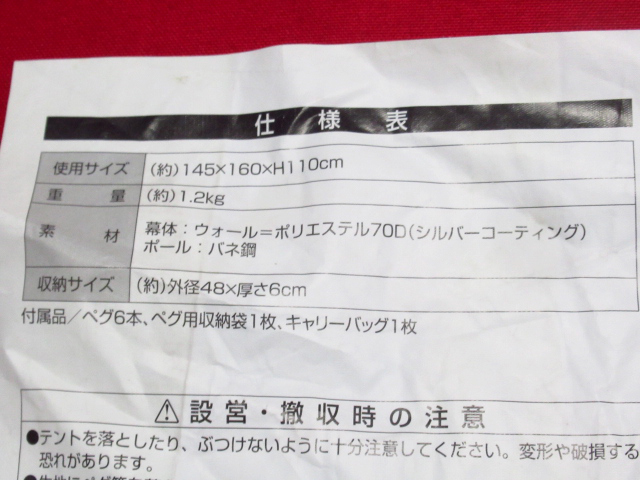 仕様表
使用サイズ (約)145×160×H110cm
重量 (約)1.2kg
素材 幕体：ウォール＝ポリエステル70D(シルバーコーティング)
ポール：バネ鋼
収納サイズ (約)外径48×厚さ6cm
付属品／ペグ6本、ペグ用収納袋1枚、キャリーバッグ1枚
⚠設営・撤収時の注意
●テントを落としたり、ぶつけないように十分注意してください。変形や破損する
恐れがあります。